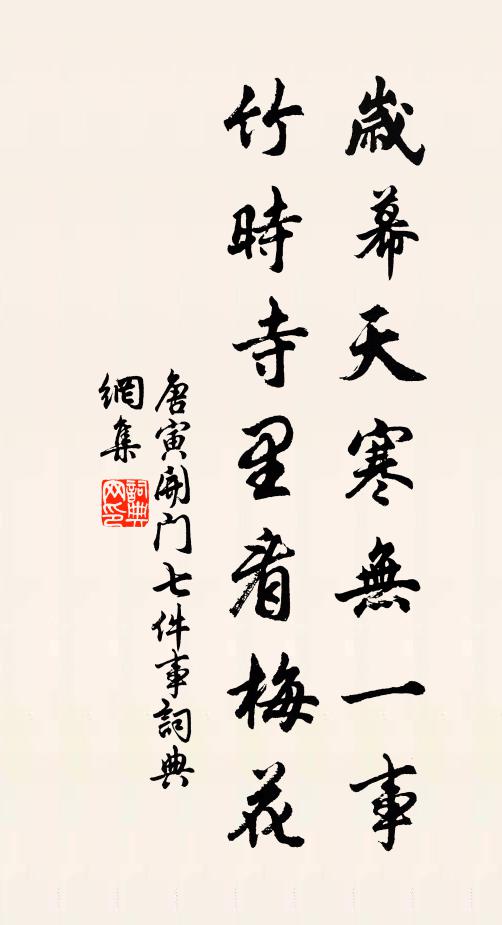 歲幕天寒無一事
竹時寺里看梅花
唐寅開門七件事詞典
網集
詞典
网印